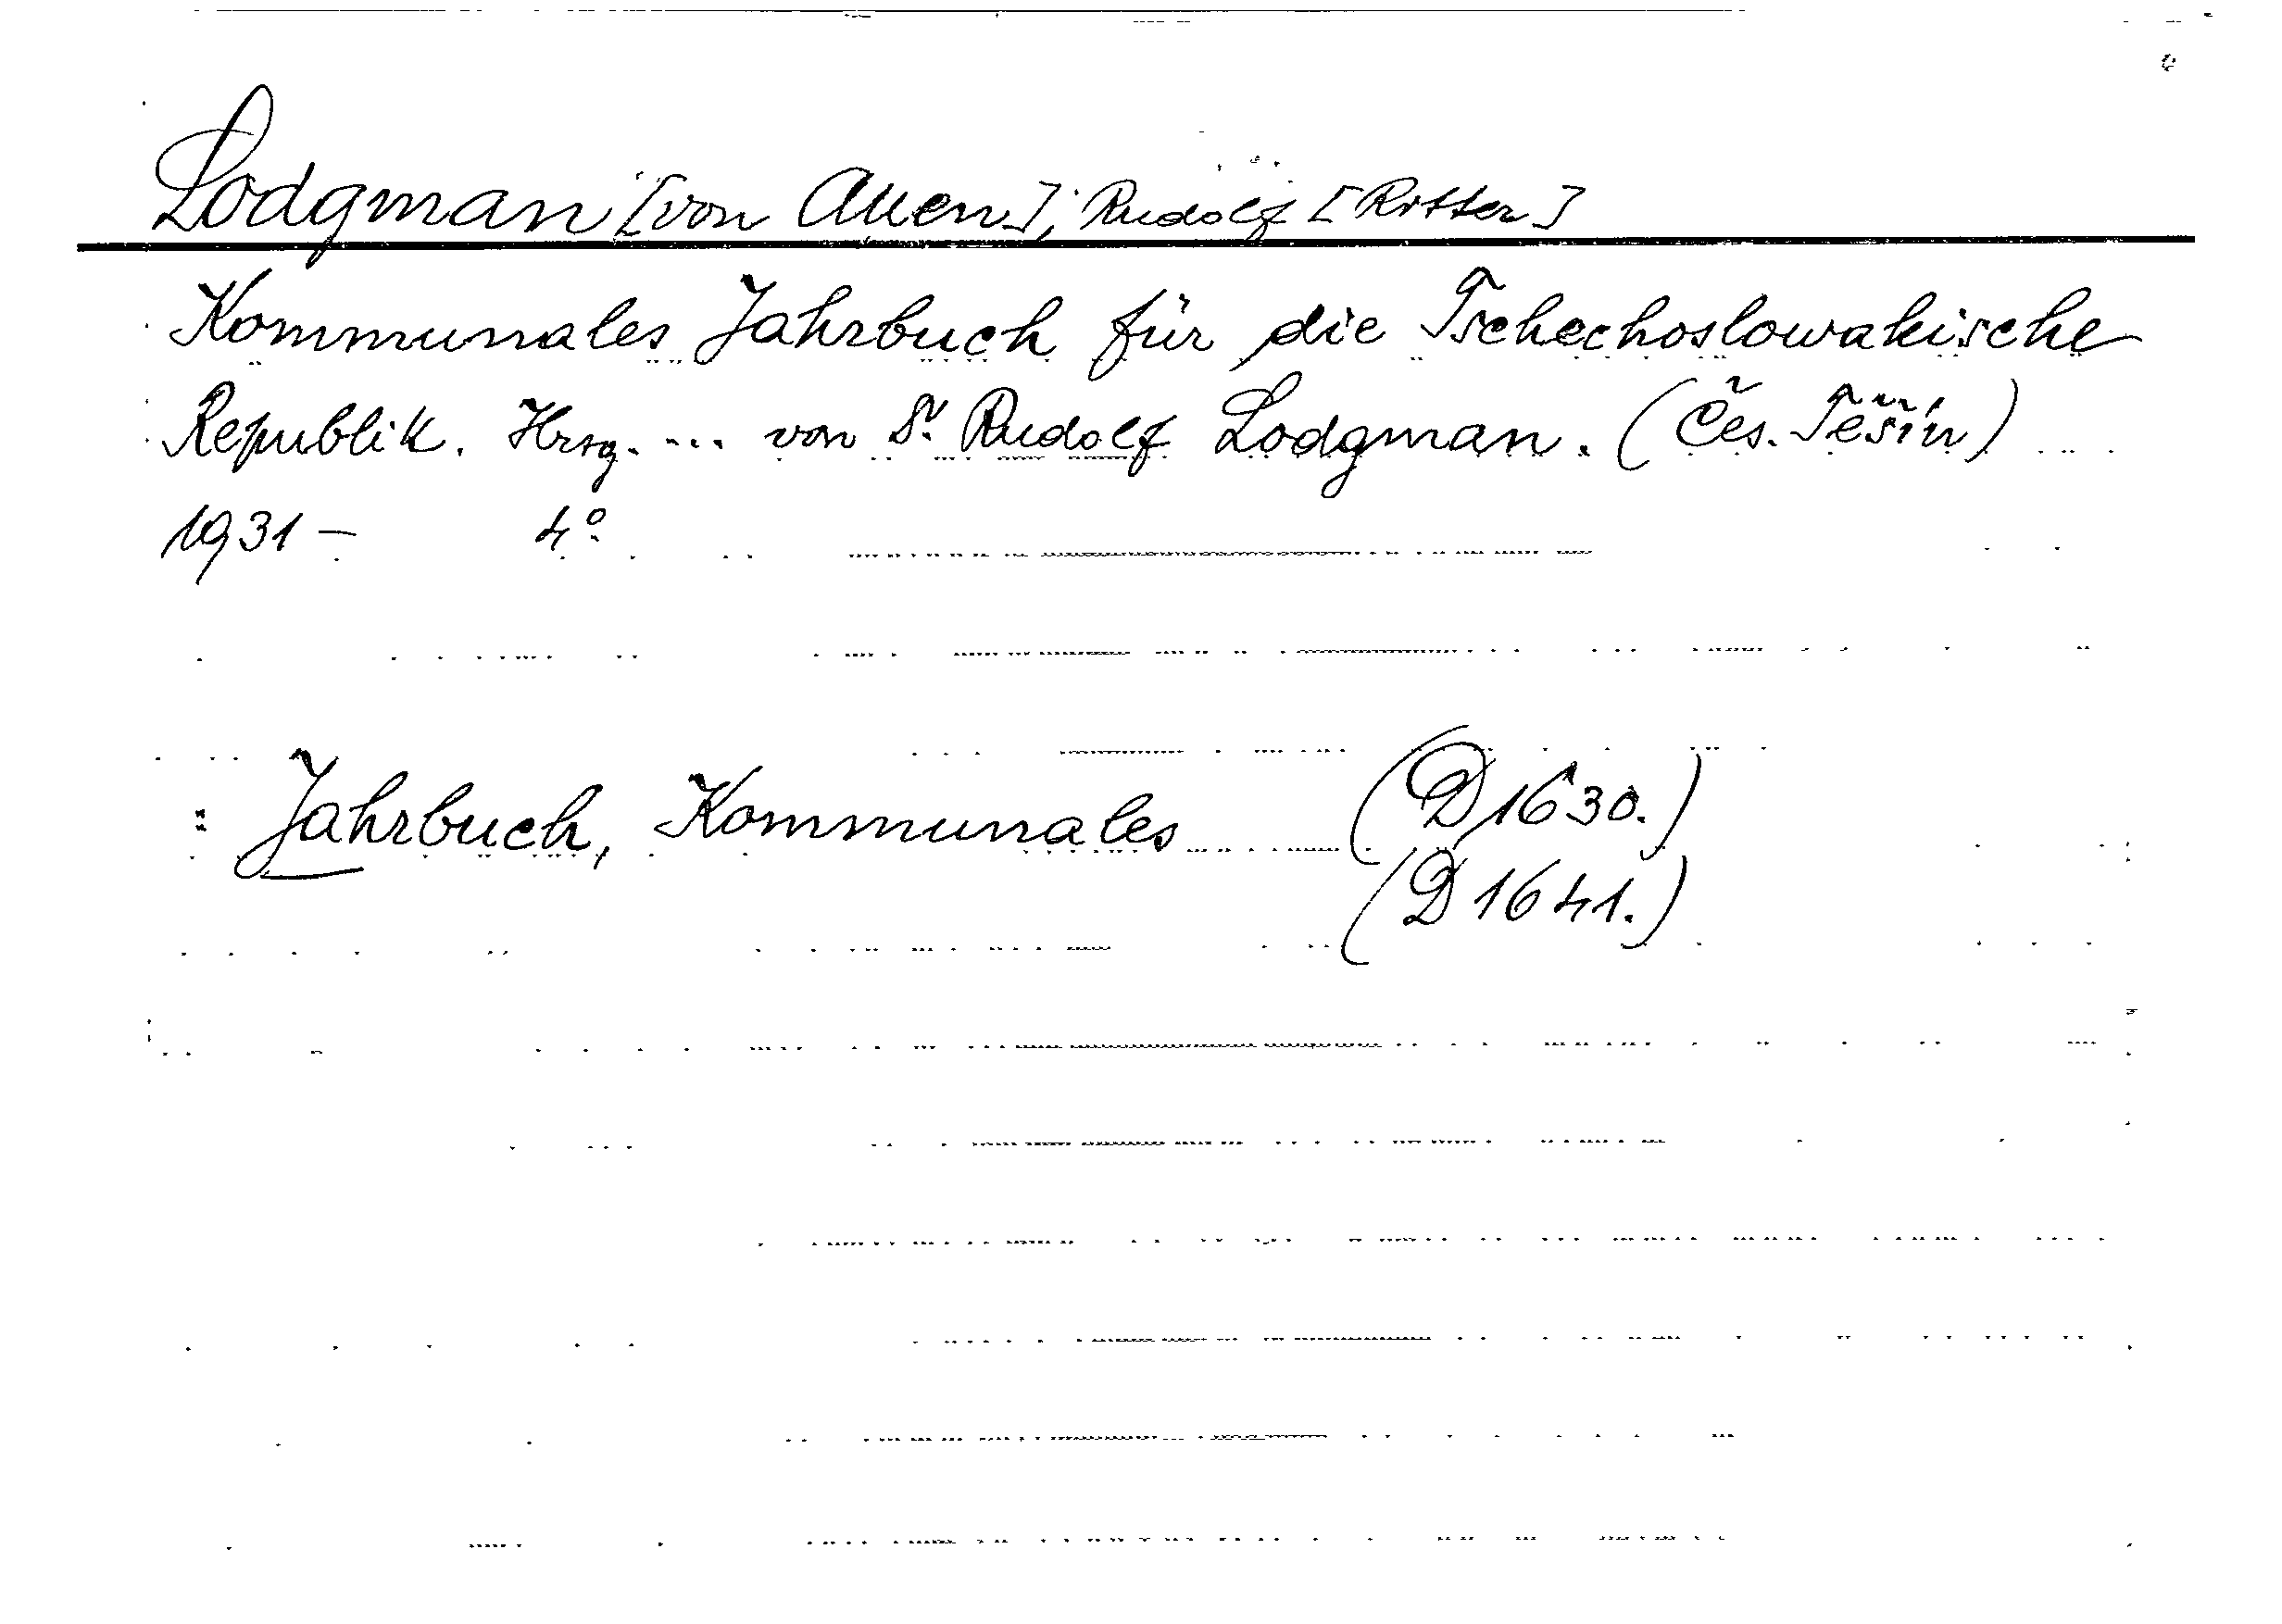 Lodgman [von Auen], Rudolf [Ritter]
Kommunales Jahrbuch für die Tschechoslowakische
Republik. Hrsg. ... von Dr. Rudolf Lodgman. (Čes. Těšín)
1931 – 4°
: Jahrbuch, Kommunales (D 1630.)
(D 1641.)